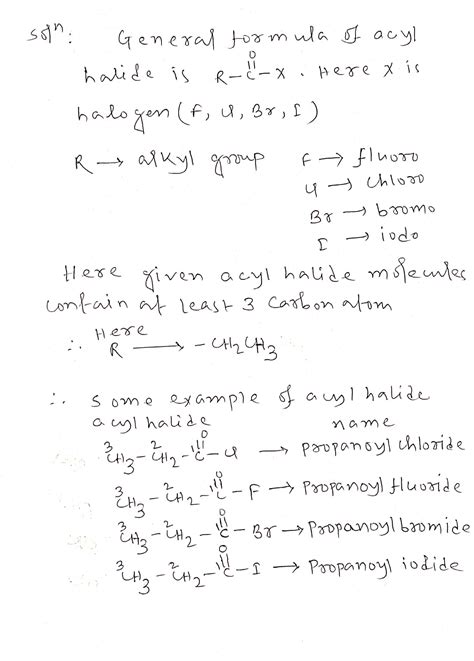 Solⁿ: General formula of acyl
halide is R-C(=O)-X. Here X is
halogen (F, Cl, Br, I)
R → alkyl group F → fluoro
Cl → chloro
Br → bromo
I → iodo
Here given acyl halide molecules
contain at least 3 carbon atom
∴ Here R → -CH₂CH₃
∴ some example of acyl halide
acyl halide name
³CH₃-²CH₂-¹C(=O)-Cl → propanoyl chloride
³CH₃-²CH₂-¹C(=O)-F → Propanoyl fluoride
³CH₃-²CH₂-¹C(=O)-Br → Propanoyl bromide
³CH₃-²CH₂-¹C(=O)-I → Propanoyl iodide